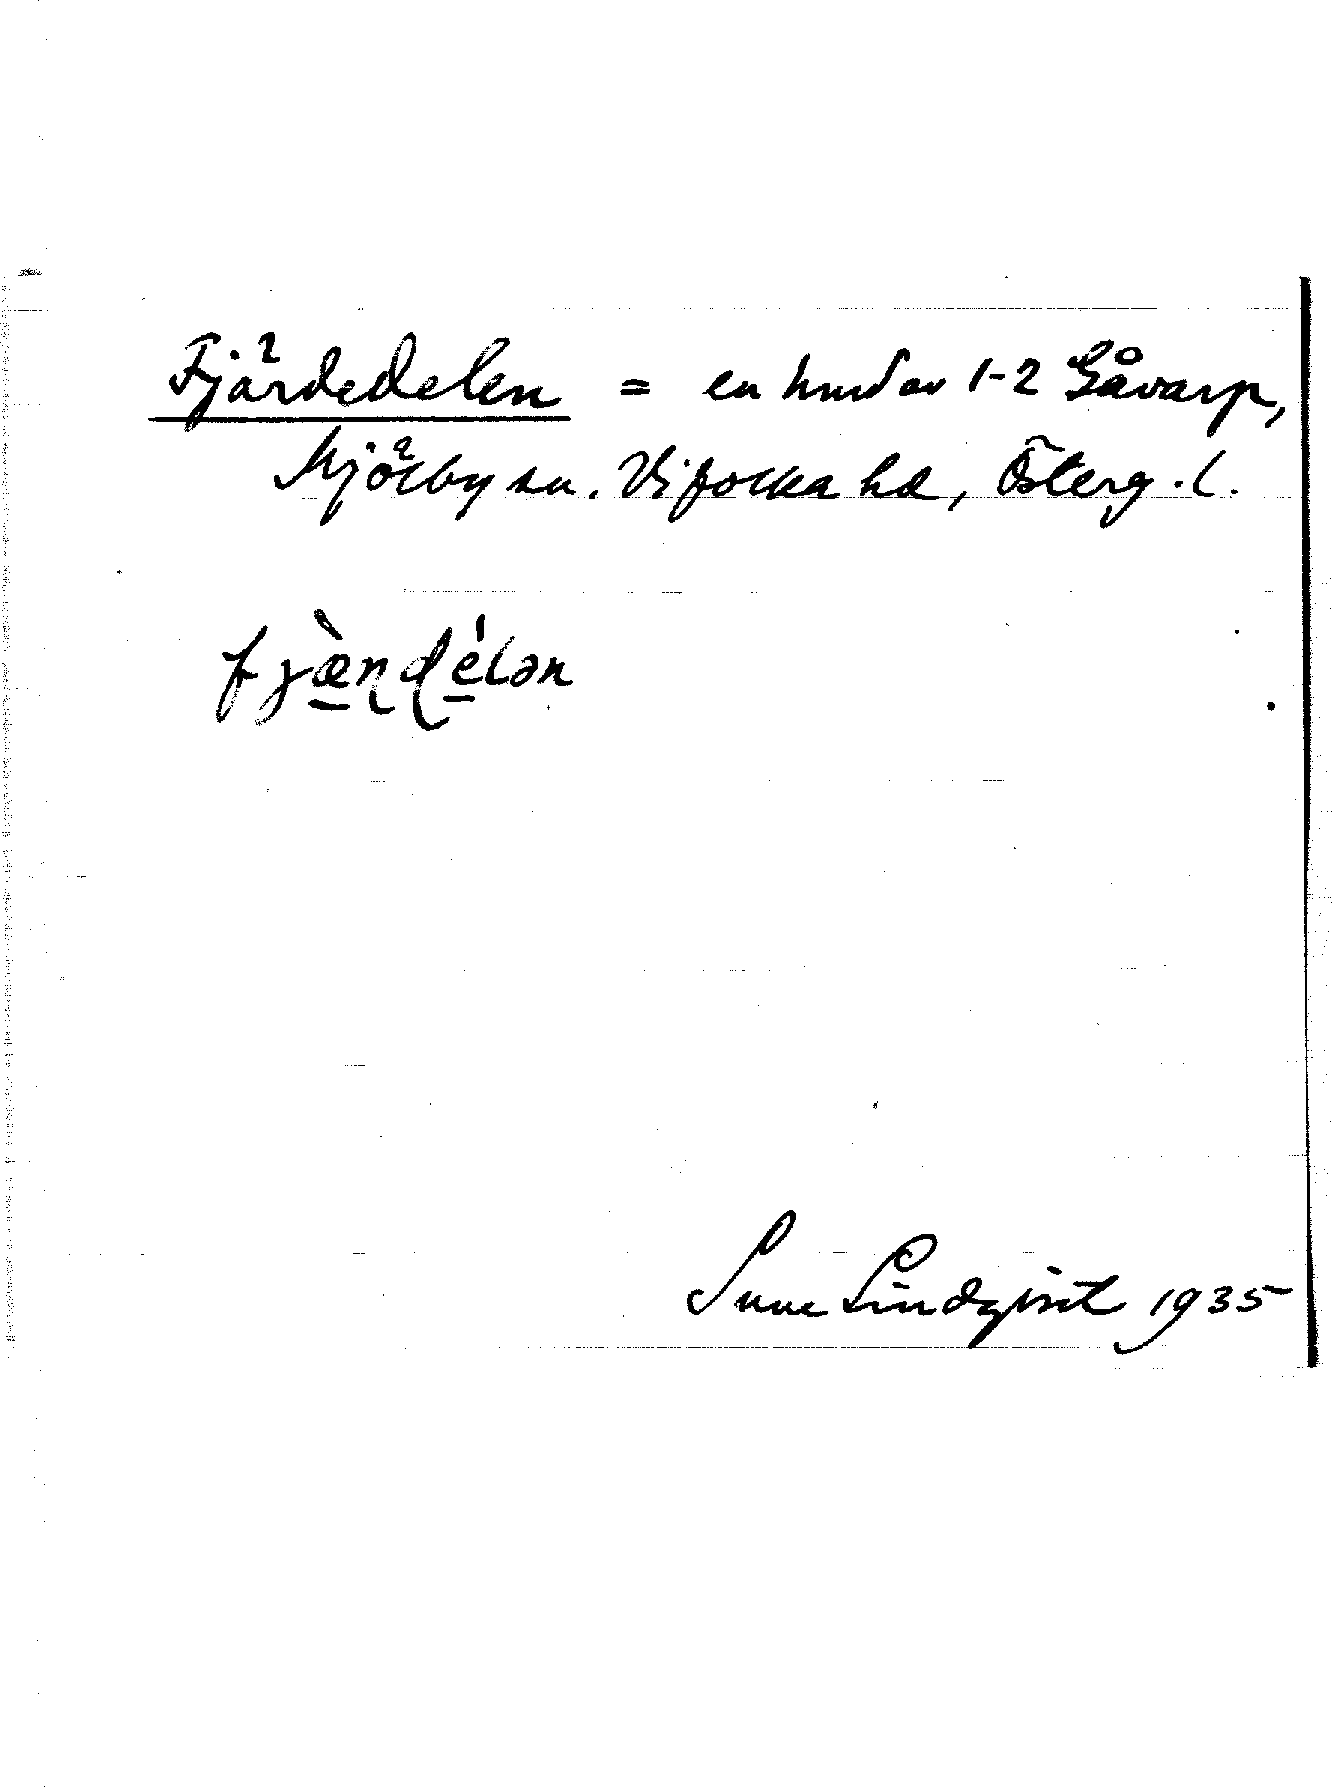 Fjärdedelen = en hmd av 1-2 Gåvarp,
Mjölby sn. Vifolka hd, Österg.l.
fjæ̀ṇḍélən
Sune Lindqvist 1935